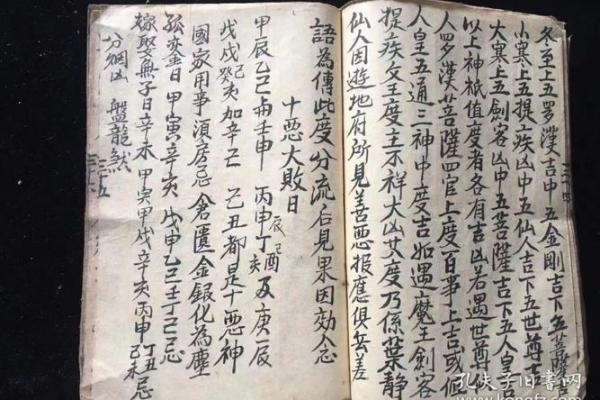 冬至上五罗漢吉中五金剛吉下五菩薩吉
小寒上五提疾凶中五仙人吉下五世尊吉
大寒上五劍客凶中五菩薩吉下五人皇吉
以上神祇值度者各有吉凶若遇世尊仸
人罗漢菩薩四官上度百事上吉或值
人皇五通三神中度吉如遇魔王劍客
提疾父王度主不祥大凶其度乃係葉静
仙人因遊地府所見善悪报應俱無差
語為傳此度分流后見果因効念
十悪大敗日
甲辰乙己与壬申 丙申丁亥及庚辰
辰己酉
戊戌癸亥加辛丑 己丑都是十悪神
國家用事湏房忌 倉匱金銀化為塵
孤鸾日 甲寅辛亥 戊申乙己壬丁己己忌
嫁娶無子日辛未 甲寅甲戌辛亥丙申丁丑乙未忌
分綱凶 盤龍煞
三十四
三十五
三十六
孔夫子旧書网
www.kongfz.com